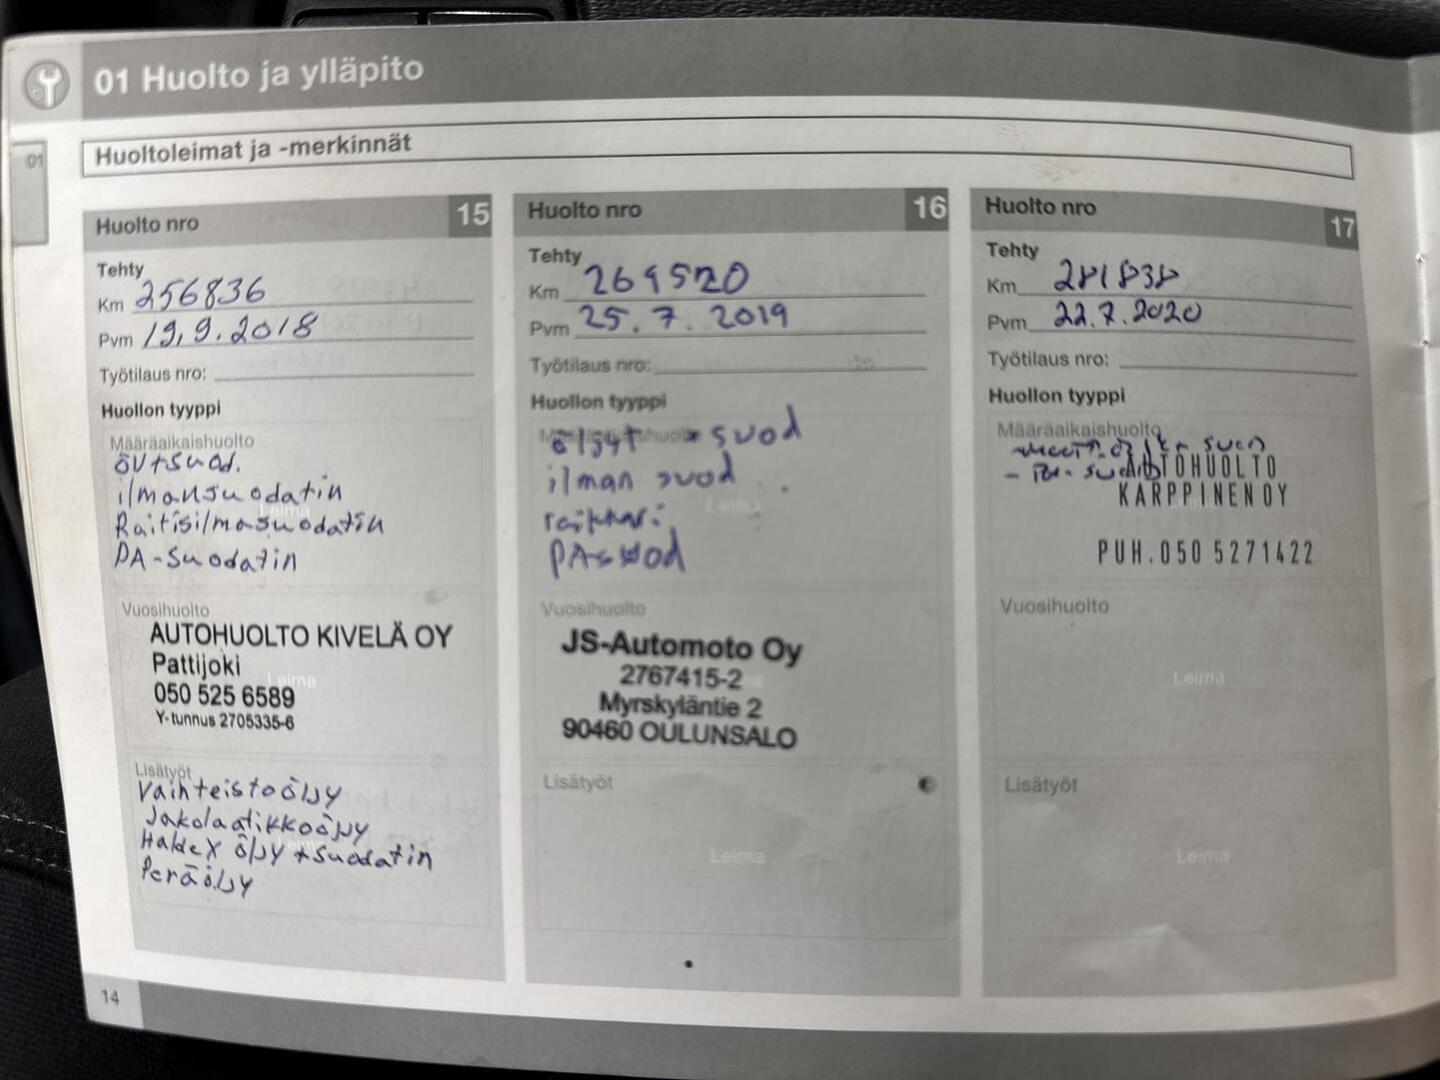 01 Huolto ja ylläpito
01
Huoltoleimat ja -merkinnät
Huolto nro 15
Tehty
Km 256836
Pvm 19.9.2018
Työtilaus nro:
Huollon tyyppi
Määräaikaishuolto
öljy+suod.
ilmansuodatin
Raitisilmasuodatin
PA-suodatin
Leima
Vuosihuolto
AUTOHUOLTO KIVELÄ OY
Pattijoki
050 525 6589
Y-tunnus 2705335-6
Leima
Lisätyöt
Vaihteistoöljy
Jakolaatikkoöljy
Haldex öljy +suodatin
Peräöljy
Huolto nro 16
Tehty
Km 269520
Pvm 25.7.2019
Työtilaus nro:
Huollon tyyppi
Määräaikaishuolto
öljyt + suod
ilman suod
raikkari
PA suod
Leima
Vuosihuolto
JS-Automoto Oy
2767415-2
Myrskyläntie 2
90460 OULUNSALO
Lisätyöt
Leima
Huolto nro 17
Tehty
Km 281838
Pvm 22.7.2020
Työtilaus nro:
Huollon tyyppi
Määräaikaishuolto
AUTOHUOLTO
KARPPINEN OY
PUH.050 5271422
Vuosihuolto
Leima
Lisätyöt
Leima
14